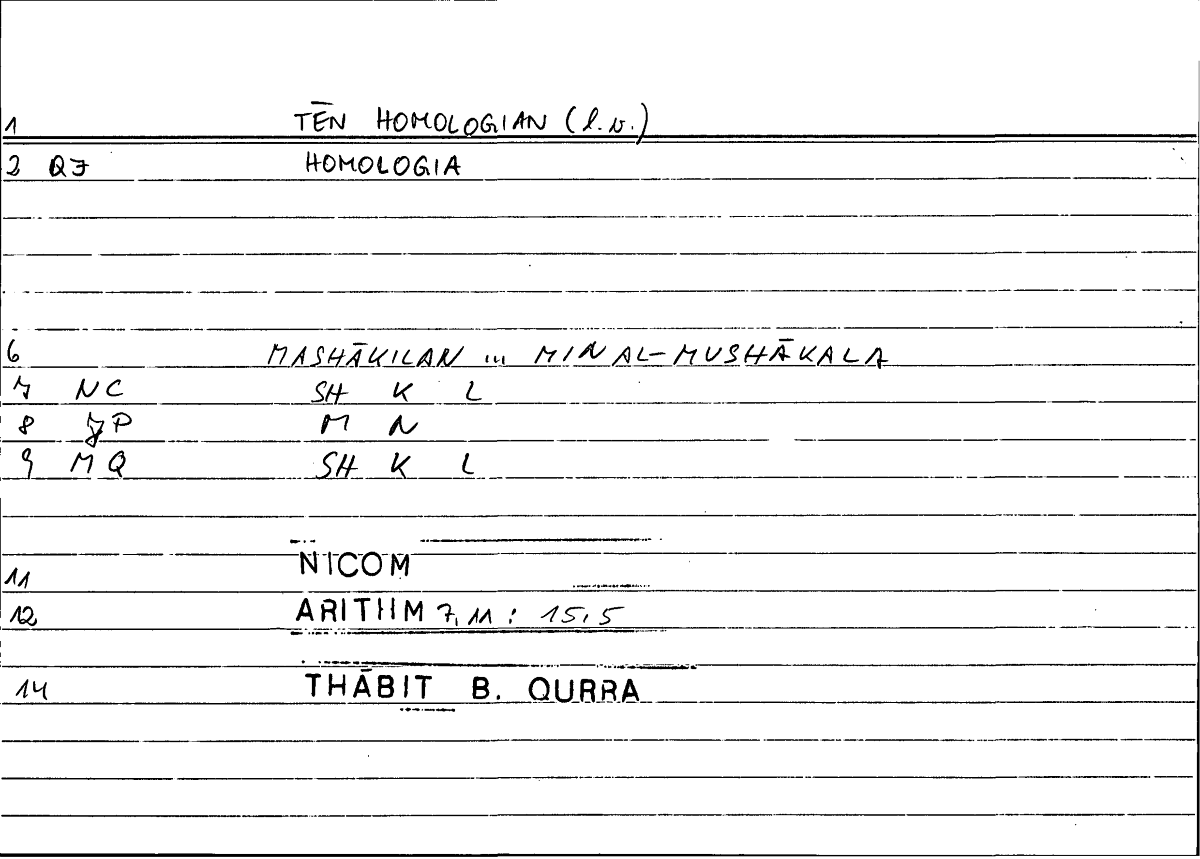 1 TĒN HOMOLOGIAN (l.v.)
2 QJ HOMOLOGIA
6 MASHĀKILAN ... MIN AL-MUSHĀKALA
7 NC SH K L
8 JP M N
9 MQ SH K L
11 NICOM
12 ARITHM 7,11 : 15,5
14 THĀBIT B. QURRA